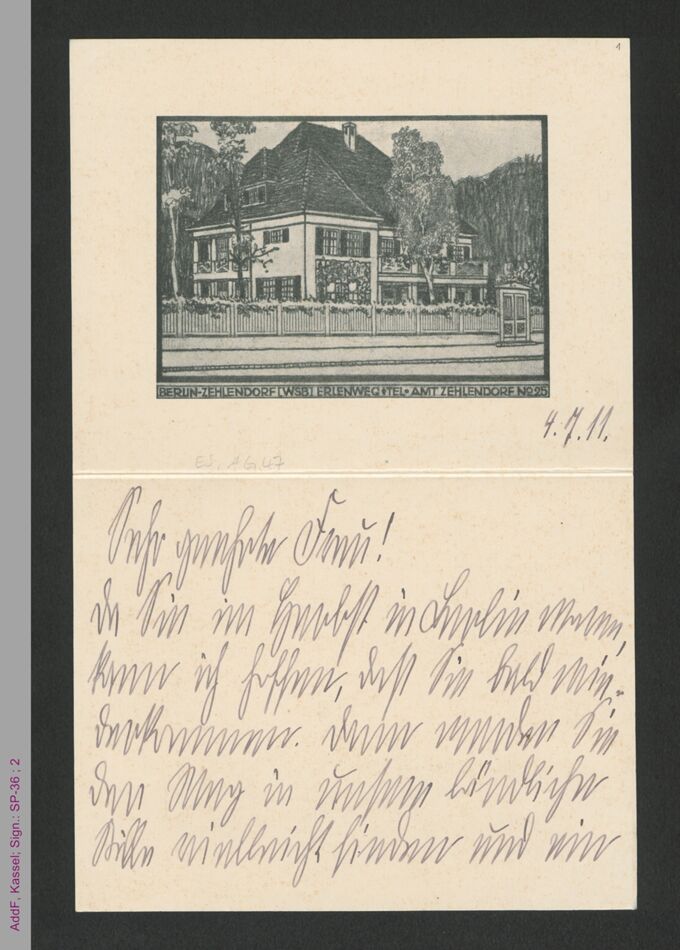 1
BERLIN-ZEHLENDORF [WSB] ERLENWEG • TEL • AMT ZEHLENDORF No 25
4.7.11.
ES. AG 47
Sehr geehrte Frau!
Da Sie im Herbst in Berlin waren,
kann ich hoffen, daß Sie bald wie-
derkommen. Dann werden Sie
den Weg in unsere ländliche
Stille vielleicht finden und ein
AddF, Kassel; Sign.: SP-36 ; 2